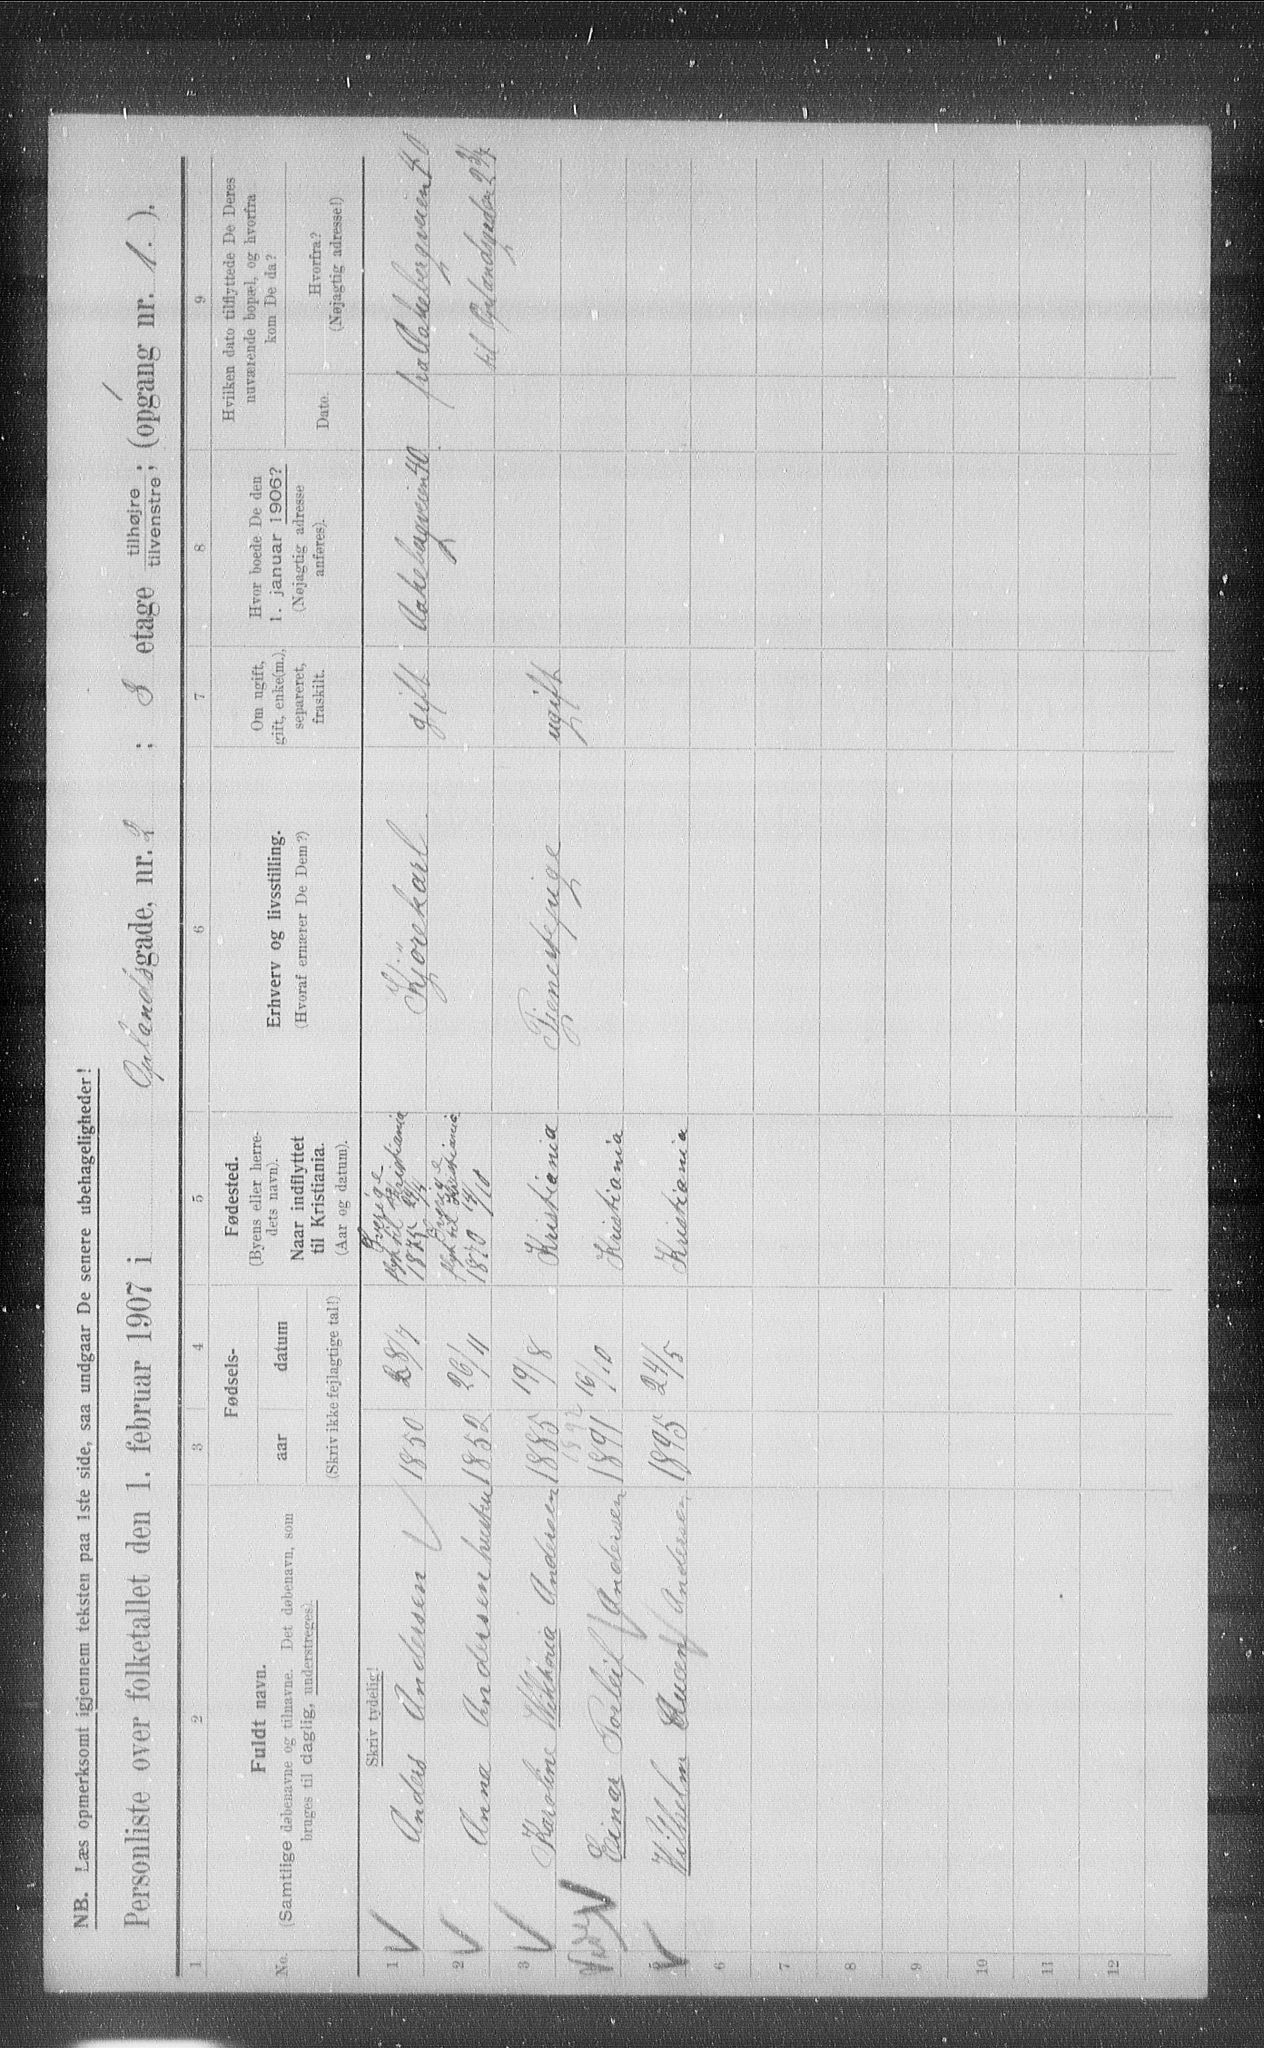 NB. Læs opmerksomt igjennem teksten paa 1ste side, saa undgaar De senere ubehageligheder!
Personliste over folketallet den 1. februar 1907 i Gjølandsgade, nr. 2 ; I etage tilhøjre tilvenstre ; (opgang nr. 1. ).
1 2 3 4 5 6 7 8 9
No.
Fuldt navn.
(Samtlige døbenavne og tilnavne. Det døbenavn, som
bruges til daglig, understreges).
Fødsels-
aar datum
(Skriv ikke fejlagtige tal!)
Fødested.
(Byens eller herre-
dets navn).
Naar indflyttet
til Kristiania.
(Aar og datum).
Erhverv og livsstilling.
(Hvoraf ernærer De Dem?)
Om ugift,
gift, enke(m.),
separeret,
fraskilt.
Hvor boede De den
1. januar 1906?
(Nøjagtig adresse
anføres).
Hvilken dato tilflyttede De Deres
nuværende bopæl, og hvorfra
kom De da?
Dato.
Hvorfra?
(Nøjagtig adresse!)
Skriv tydelig!
1 Anders Andersen 1850 28/7 Sverige til Kristiania 1875 Kjørekarl gift Aakebergveien 40 fra Aakebergveien 40
2 Anna Andersen hustru 1852 26/11 Sverige til Kristiania 1870 14/10 til
3 Karoline Vikhoria Andersen 1885 19/8 Kristiania Tjenestepige ugift
1892
Einar Torleif Andersen 1891 16/10 Kristiania
5 Vilhelm Andersen 1895 24/5 Kristiania
6
7
8
9
10
11
12